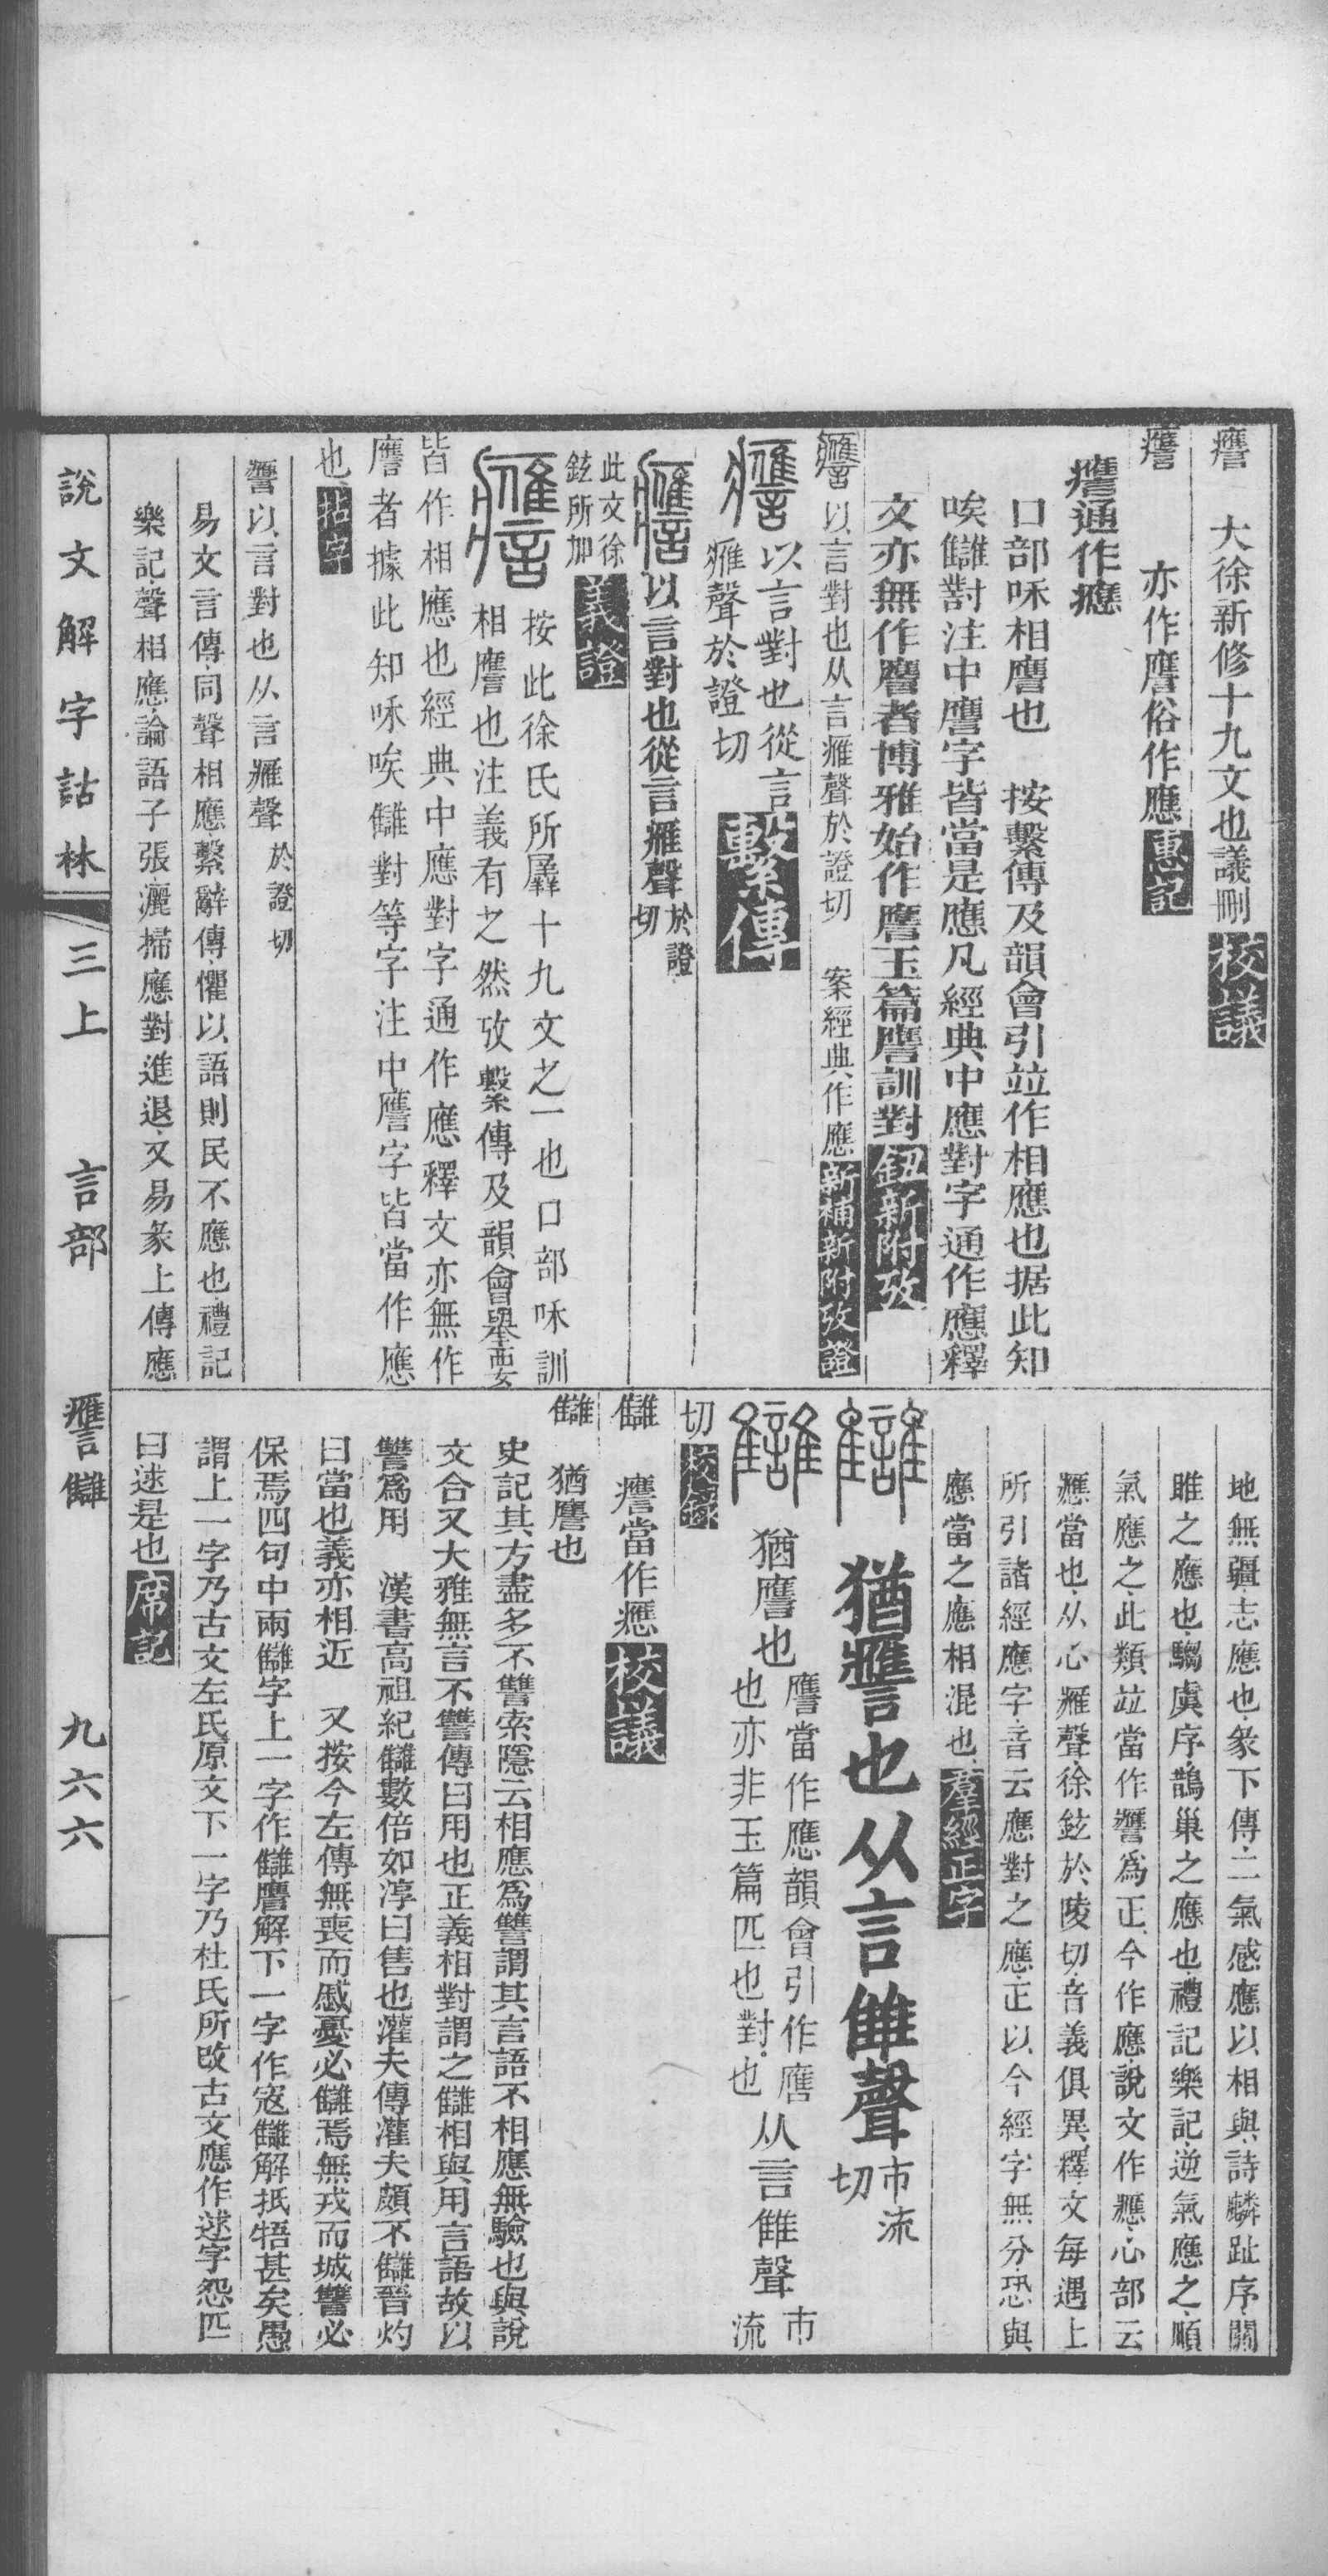 譍　大徐新修十九文也議刪校議
譍　亦作譍俗作應惠記
譍通作應
口部咊相譍也　按繫傳及韻會引竝作相應也据此知
唉讎對注中譍字皆當是應凡經典中應對字通作應釋
文亦無作譍者博雅始作譍玉篇譍訓對鈕新附攷
譍以言對也从言䧹聲於證切　案經典作應新補新附攷證
譍以言對也從言
䧹聲於證切繫傳
譍以言對也從言䧹聲於證切
此文徐
鉉所加義證
譍按此徐氏所羼十九文之一也口部咊訓
相譍也注義有之然攷繫傳及韻會舉要
皆作相應也經典中應對字通作應釋文亦無作
譍者據此知咊唉讎對等字注中譍字皆當作應
也拈字
譍以言對也从言䧹聲於證切
易文言傳同聲相應繫辭傳懼以語則民不應也禮記
樂記聲相應論語子張灑掃應對進退又易彖上傳應
地無疆志應也彖下傳二氣感應以相與詩麟趾序關
雎之應也騶虞序鵲巢之應也禮記樂記逆氣應之順
氣應之此類竝當作譍爲正今作應說文作應心部云
應當也从心䧹聲徐鉉於陵切音義俱異釋文每遇上
所引諸經應字音云應對之應正以今經字無分恐與
應當之應相混也羣經正字
讎猶譍也从言雔聲市流切
讎猶譍也譍當作應韻會引作譍
也亦非玉篇匹也對也从言雔聲市流
切校錄
讎　譍當作應校議
讎　猶譍也
史記其方盡多不讐索隱云相應爲讐謂其言語不相應無驗也與說
文合又大雅無言不讐傳曰用也正義相對謂之讎相與用言語故以
讐爲用　漢書高祖紀讎數倍如淳曰售也灌夫傳灌夫頗不讎晉灼
曰當也義亦相近　又按今左傳無喪而慼憂必讎焉無戎而城讐必
保焉四句中兩讎字上一字作讎譍解下一字作寇讎解抵牾甚矣愚
謂上一字乃古文左氏原文下一字乃杜氏所改古文應作逑字怨匹
曰逑是也席記
說文解字詁林　三上　言部　譍讎　九六六